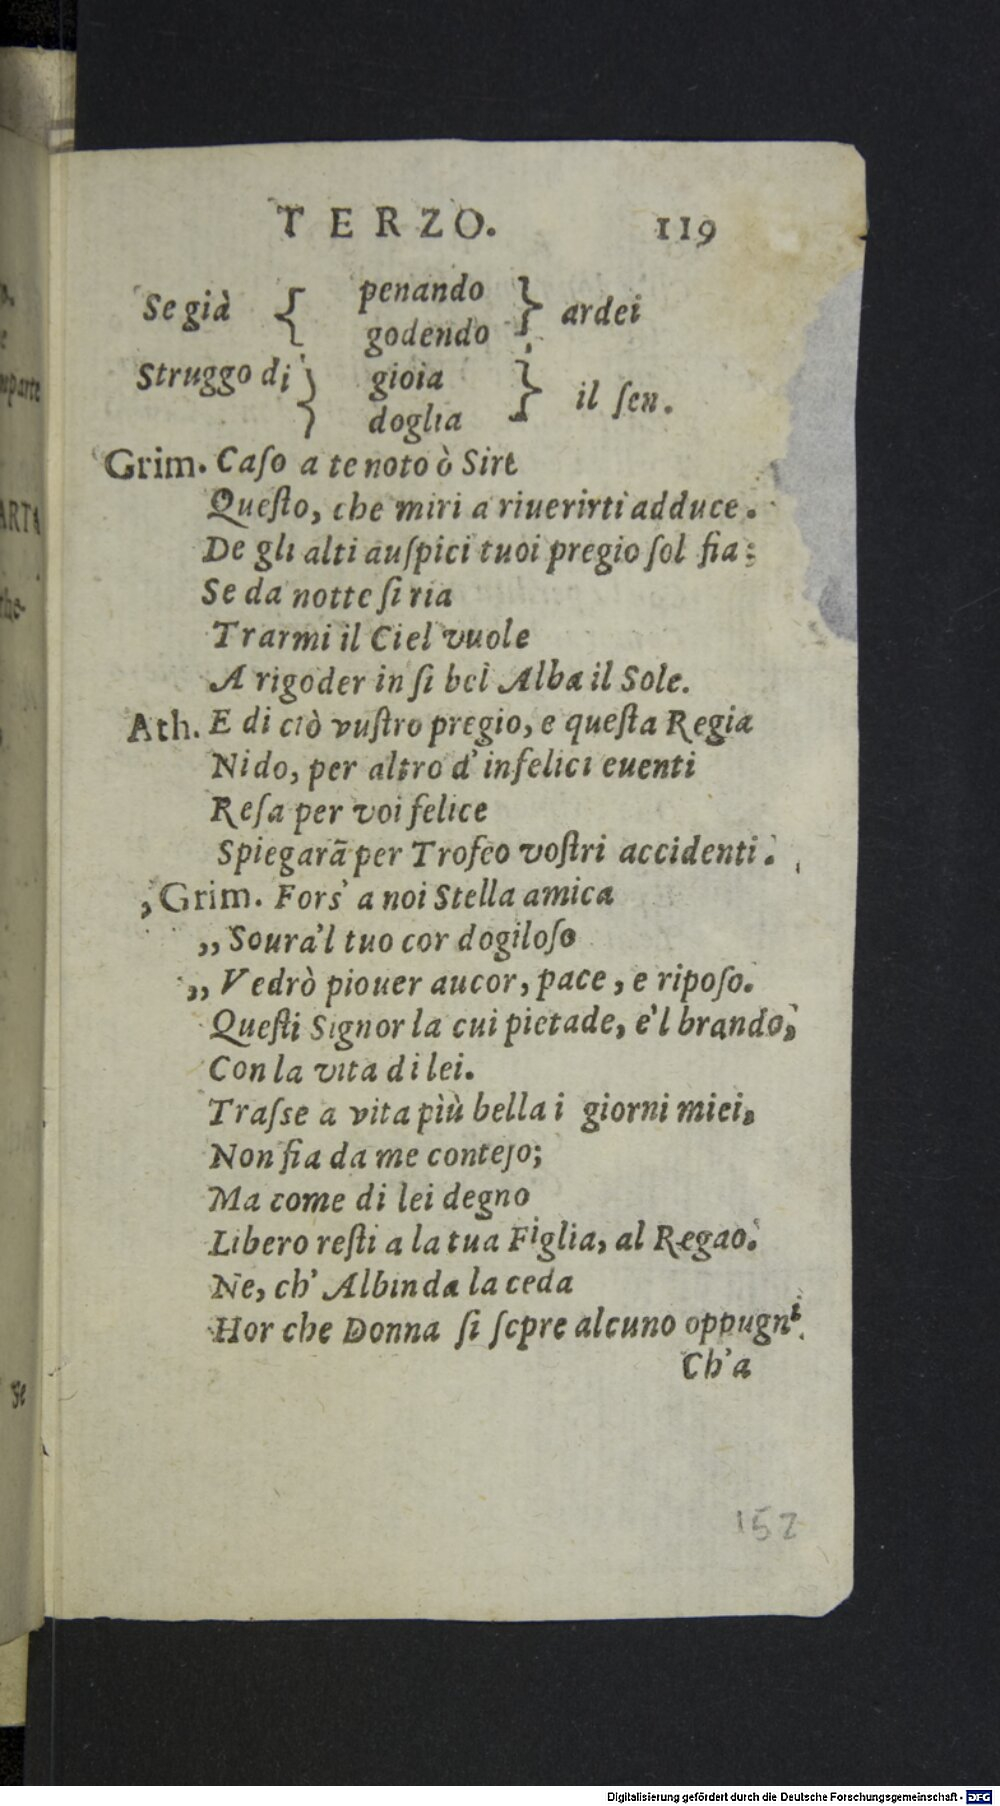 TERZO. 119
Se già { penando } ardei
godendo
Struggo di } gioia } il ſen.
doglia
Grim. Caſo a te noto ò Sire
Queſto, che miri a riuerirti adduce.
De gli alti auſpici tuoi pregio ſol fia;
Se da notte ſi ria
Trarmi il Ciel vuole
A rigoder in ſi bel Alba il Sole.
Ath. E di ciò vuſtro pregio, e queſta Regia
Nido, per altro d' infelici euenti
Reſa per voi felice
Spiegarã per Trofeo voſtri accidenti.
,Grim. Fors' a noi Stella amica
,, Soura'l tuo cor dogiloſo
,, Vedrò piouer aucor, pace, e ripoſo.
Queſti Signor la cui pietade, e'l brando,
Con la vita di lei.
Traſse a vita più bella i giorni miei,
Non fia da me conteſo;
Ma come di lei degno
Libero reſti a la tua Figlia, al Regao.
Ne, ch' Albinda la ceda
Hor che Donna ſi ſcpre alcuno oppugni
Ch'a
152
Se
Digitalisierung gefördert durch die Deutsche Forschungsgemeinschaft - DFG